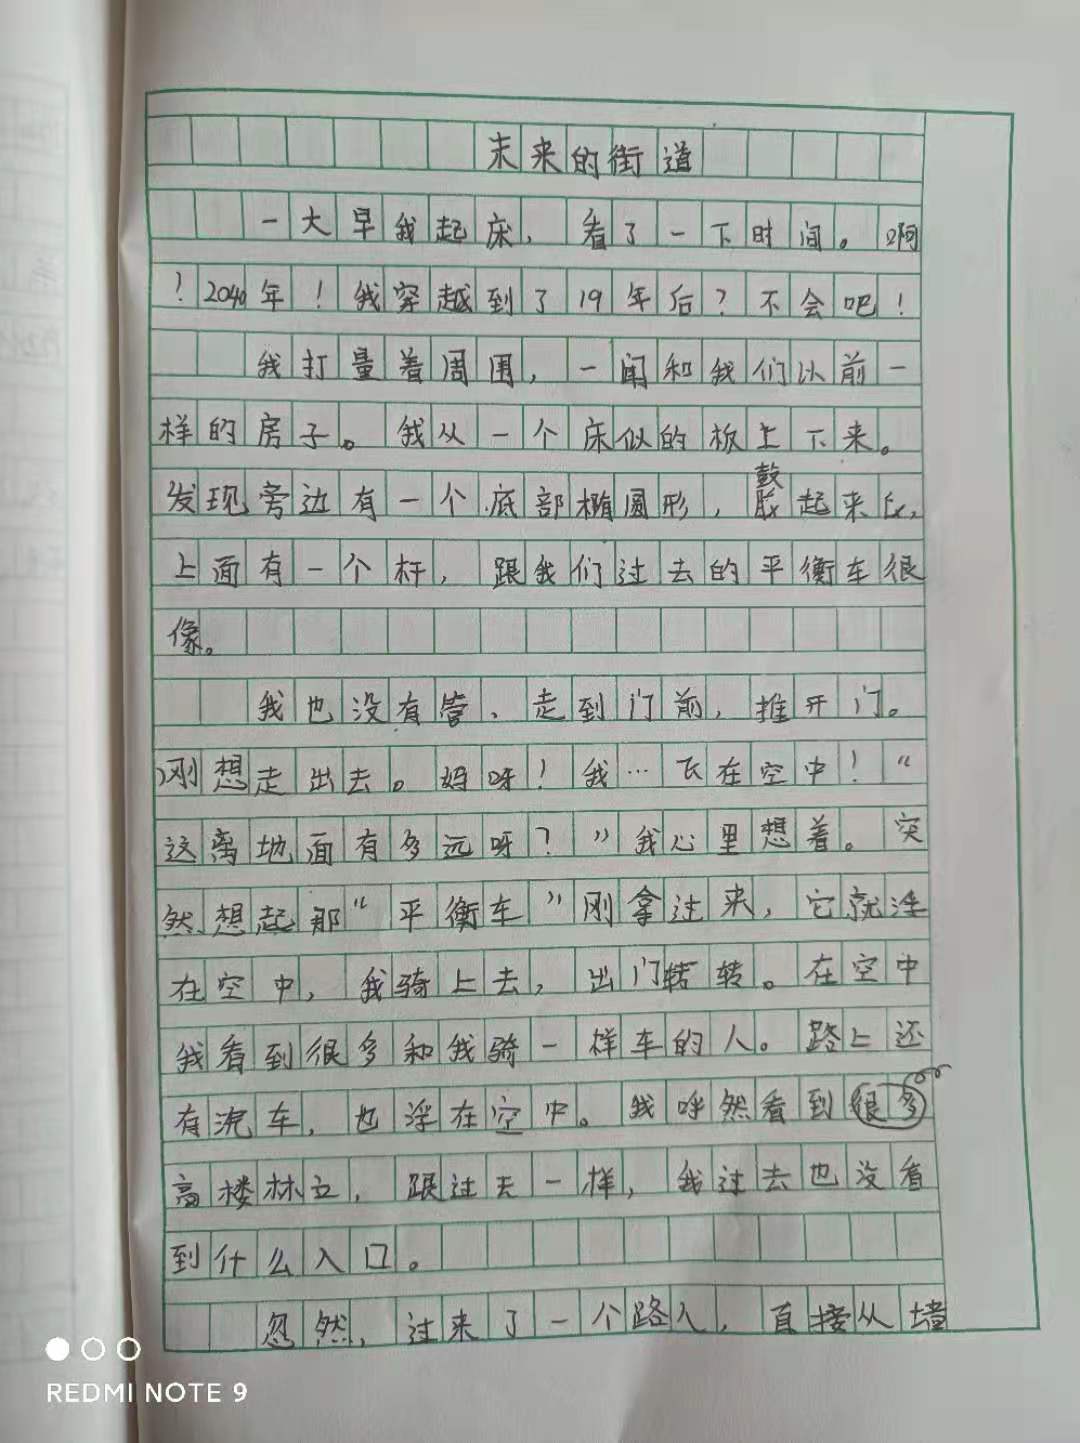 未来的街道
一大早我起床，看了一下时间。啊
！2040年！我穿越到了19年后？不会吧！
我打量着周围，一间和我们以前一
样的房子。我从一个床似的板上下来。
发现旁边有一个底部椭圆形，鼓起来的，
上面有一个杆，跟我们过去的平衡车很
像。
我也没有管、走到门前，推开门。
刚想走出去。妈呀！我…飞在空中！“
这离地面有多远呀？”我心里想着。突
然想起那“平衡车”刚拿过来，它就浮
在空中，我骑上去，出门转转。在空中
我看到很多和我骑一样车的人。路上还
有汽车，也浮在空中。我呼然看到
高楼林立，跟过去一样，我过去也没看
到什么入口。
忽然，过来了一个路人，直接从墙
REDMI NOTE 9